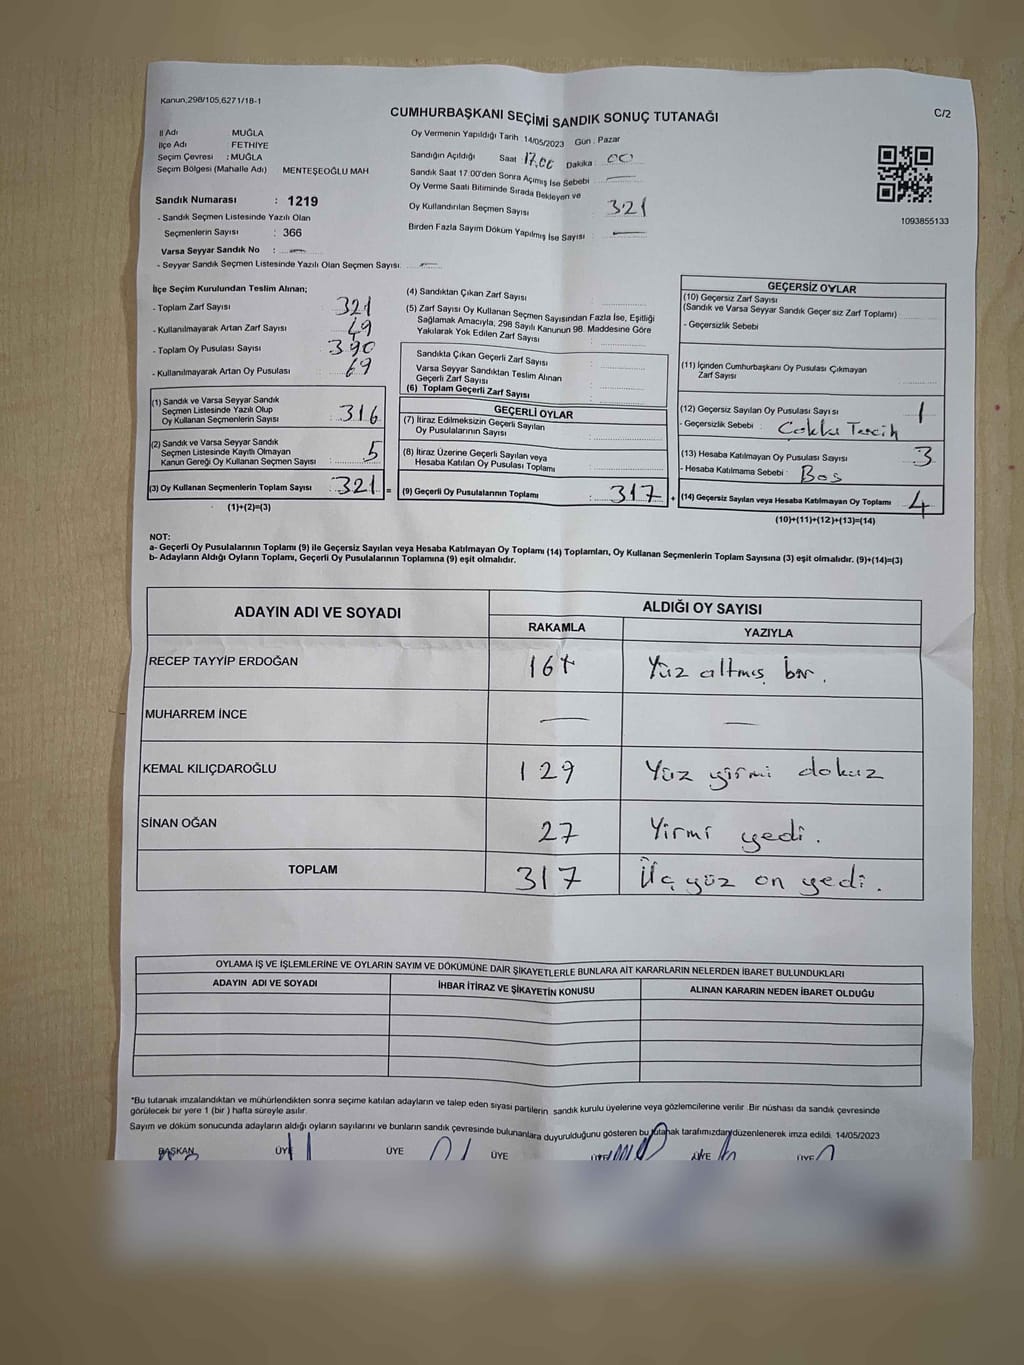 Kanun,298/105,6271/18-1
CUMHURBAŞKANI SEÇİMİ SANDIK SONUÇ TUTANAĞI
C/2
İl Adı MUĞLA
İlçe Adı FETHİYE
Seçim Çevresi : MUĞLA
Seçim Bölgesi (Mahalle Adı) MENTEŞEOĞLU MAH
Sandık Numarası : 1219
- Sandık Seçmen Listesinde Yazılı Olan
Seçmenlerin Sayısı : 366
Varsa Seyyar Sandık No : —
- Seyyar Sandık Seçmen Listesinde Yazılı Olan Seçmen Sayısı: —
Oy Vermenin Yapıldığı Tarih 14/05/2023 Gün : Pazar
Sandığın Açıldığı Saat 17.00 Dakika : 00
Sandık Saat 17.00'den Sonra Açımış İse Sebebi : —
Oy Verme Saati Bitiminde Sırada Bekleyen ve
Oy Kullandırılan Seçmen Sayısı : 321
Birden Fazla Sayım Döküm Yapılmış İse Sayısı : —
1093855133
İlçe Seçim Kurulundan Teslim Alınan;
- Toplam Zarf Sayısı : 321
- Kullanılmayarak Artan Zarf Sayısı : 49
- Toplam Oy Pusulası Sayısı : 390
- Kullanılmayarak Artan Oy Pusulası : 69
(1) Sandık ve Varsa Seyyar Sandık
Seçmen Listesinde Yazılı Olup
Oy Kullanan Seçmenlerin Sayısı : 316
(2) Sandık ve Varsa Seyyar Sandık
Seçmen Listesinde Kayıtlı Olmayan
Kanun Gereği Oy Kullanan Seçmen Sayısı : 5
(3) Oy Kullanan Seçmenlerin Toplam Sayısı : 321 =
(1)+(2)=(3)
(4) Sandıktan Çıkan Zarf Sayısı :
(5) Zarf Sayısı Oy Kullanan Seçmen Sayısından Fazla İse, Eşitliği
Sağlamak Amacıyla, 298 Sayılı Kanunun 98. Maddesine Göre
Yakılarak Yok Edilen Zarf Sayısı :
Sandıkta Çıkan Geçerli Zarf Sayısı :
Varsa Seyyar Sandıktan Teslim Alınan
Geçerli Zarf Sayısı :
(6) Toplam Geçerli Zarf Sayısı :
GEÇERLİ OYLAR
(7) İtiraz Edilmeksizin Geçerli Sayılan
Oy Pusulalarının Sayısı :
(8) İtiraz Üzerine Geçerli Sayılan veya
Hesaba Katılan Oy Pusulası Toplamı :
(9) Geçerli Oy Pusulalarının Toplamı : 317 +
GEÇERSİZ OYLAR
(10) Geçersiz Zarf Sayısı
(Sandık ve Varsa Seyyar Sandık Geçersiz Zarf Toplamı) :
- Geçersizlik Sebebi :
(11) İçinden Cumhurbaşkanı Oy Pusulası Çıkmayan
Zarf Sayısı :
(12) Geçersiz Sayılan Oy Pusulası Sayısı : 1
- Geçersizlik Sebebi : Çoklu Tercih
(13) Hesaba Katılmayan Oy Pusulası Sayısı : 3
- Hesaba Katılmama Sebebi : Boş
(14) Geçersiz Sayılan veya Hesaba Katılmayan Oy Toplamı : 4
(10)+(11)+(12)+(13)=(14)
NOT:
a- Geçerli Oy Pusulalarının Toplamı (9) ile Geçersiz Sayılan veya Hesaba Katılmayan Oy Toplamı (14) Toplamları, Oy Kullanan Seçmenlerin Toplam Sayısına (3) eşit olmalıdır. (9)+(14)=(3)
b- Adayların Aldığı Oyların Toplamı, Geçerli Oy Pusulalarının Toplamına (9) eşit olmalıdır.
ADAYIN ADI VE SOYADI
ALDIĞI OY SAYISI
RAKAMLA YAZIYLA
RECEP TAYYİP ERDOĞAN 161 Yüz altmış bir.
MUHARREM İNCE — —
KEMAL KILIÇDAROĞLU 129 Yüz yirmi dokuz
SİNAN OĞAN 27 Yirmi yedi.
TOPLAM 317 Üç yüz on yedi.
OYLAMA İŞ VE İŞLEMLERİNE VE OYLARIN SAYIM VE DÖKÜMÜNE DAİR ŞİKAYETLERLE BUNLARA AİT KARARLARIN NELERDEN İBARET BULUNDUKLARI
ADAYIN ADI VE SOYADI İHBAR İTİRAZ VE ŞİKAYETİN KONUSU ALINAN KARARIN NEDEN İBARET OLDUĞU
*Bu tutanak imzalandıktan ve mühürlendikten sonra seçime katılan adayların ve talep eden siyasi partilerin sandık kurulu üyelerine veya gözlemcilerine verilir .Bir nüshası da sandık çevresinde
görülecek bir yere 1 (bir ) hafta süreyle asılır.
Sayım ve döküm sonucunda adayların aldığı oyların sayılarını ve bunların sandık çevresinde bulunanlara duyurulduğunu gösteren bu tutanak tarafımızdan düzenlenerek imza edildi. 14/05/2023
BAŞKAN ÜYE ÜYE ÜYE ÜYE ÜYE ÜYE